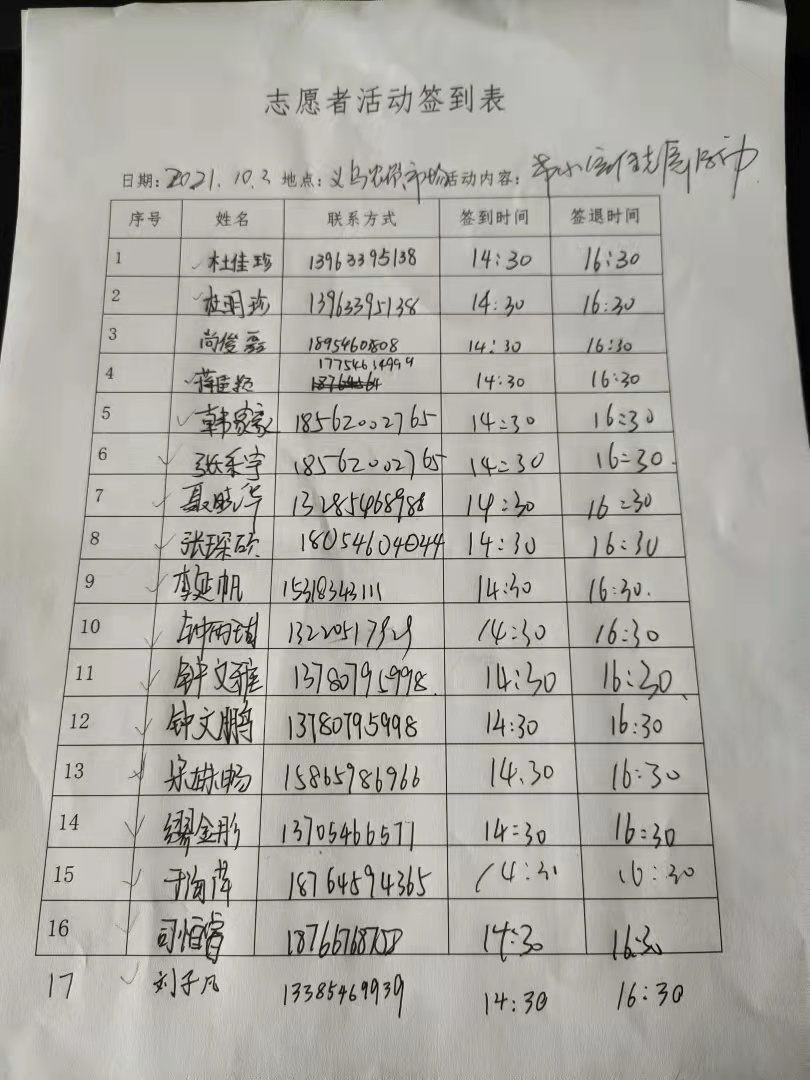 志愿者活动签到表
日期：2021.10.3 地点：义乌农贸市场 活动内容：
序号 姓名 联系方式 签到时间 签退时间
1 杜佳珍 13963395138 14:30 16:30
2 杜明珍 13963395138 14:30 16:30
3 尚俊磊 1895460808 14:30 16:30
4 17754614999 14:30 16:30
5 韩家豪 18562002765 14:30 16:30
6 张秉宇 18562002765 14:30 16:30.
7 聂晓华 13285468988 14:30 16:30
8 张琛硕 18054604044 14:30 16:30
9 李延帆 15318343111 14:30 16:30.
10 14:30 16:30
11 钟文雅 13780795998. 14:30 16:30
12 钟文鹏 13780795998 14:30 16:30
13 15865986966 14.30 16:30
14 缪金彤 13705466577 14:30 16:30
15 于海萍 18764594365 14:30 16:30
16 司恒睿 14:30 16:30
17 刘子凡 13385469939 14:30 16:30